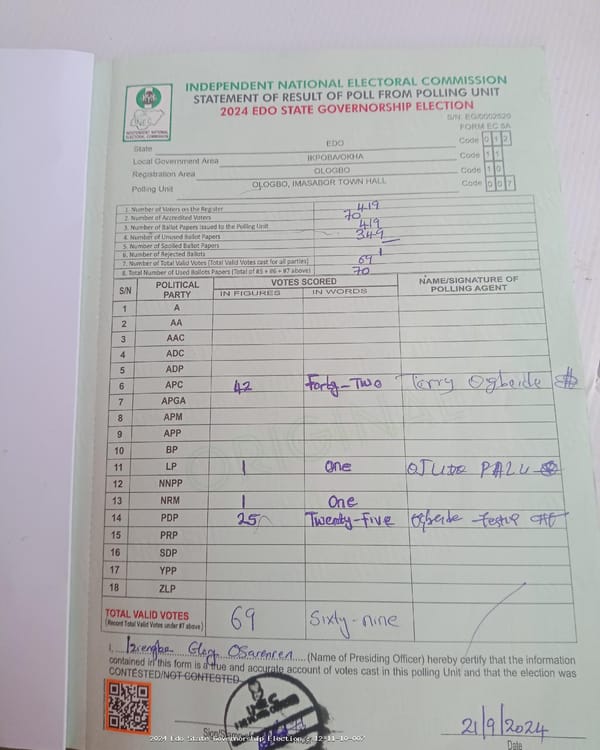 INDEPENDENT NATIONAL ELECTORAL COMMISSION
STATEMENT OF RESULT OF POLL FROM POLLING UNIT
2024 EDO STATE GOVERNORSHIP ELECTION
S/N. EG/0002520
FORM EC 8A
INEC
INDEPENDENT NATIONAL ELECTORAL COMMISSION
State EDO Code 012
Local Government Area IKPOBA/OKHA Code 11
Registration Area OLOGBO Code 10
Polling Unit OLOGBO, IMASABOR TOWN HALL Code 007
1. Number of Voters on the Register 419
2. Number of Accredited Voters 70
3. Number of Ballot Papers Issued to the Polling Unit 419
4. Number of Unused Ballot Papers 349
5. Number of Spoiled Ballot Papers
6. Number of Rejected Ballots 1
7. Number of Total Valid Votes (Total Valid Votes cast for all parties) 69
8. Total Number of Used Ballots Papers (Total of #5 + #6 + #7 above) 70
S/N POLITICAL PARTY VOTES SCORED NAME/SIGNATURE OF POLLING AGENT
IN FIGURES IN WORDS
1 A
2 AA
3 AAC
4 ADC
5 ADP
6 APC 42 Forty-Two Terry Ogbeide
7 APGA
8 APM
9 APP
10 BP
11 LP 1 one
12 NNPP
13 NRM 1 One
14 PDP 25 Twenty-Five Ogbeide
15 PRP
16 SDP
17 YPP
18 ZLP
TOTAL VALID VOTES 69 Sixty-nine
(Record Total Valid Votes under #7 above)
I, Osarenren (Name of Presiding Officer) hereby certify that the information
contained in this form is a true and accurate account of votes cast in this polling Unit and that the election was
CONTESTED/NOT CONTESTED
21/9/2024
Date
2024 Edo State Governorship Election